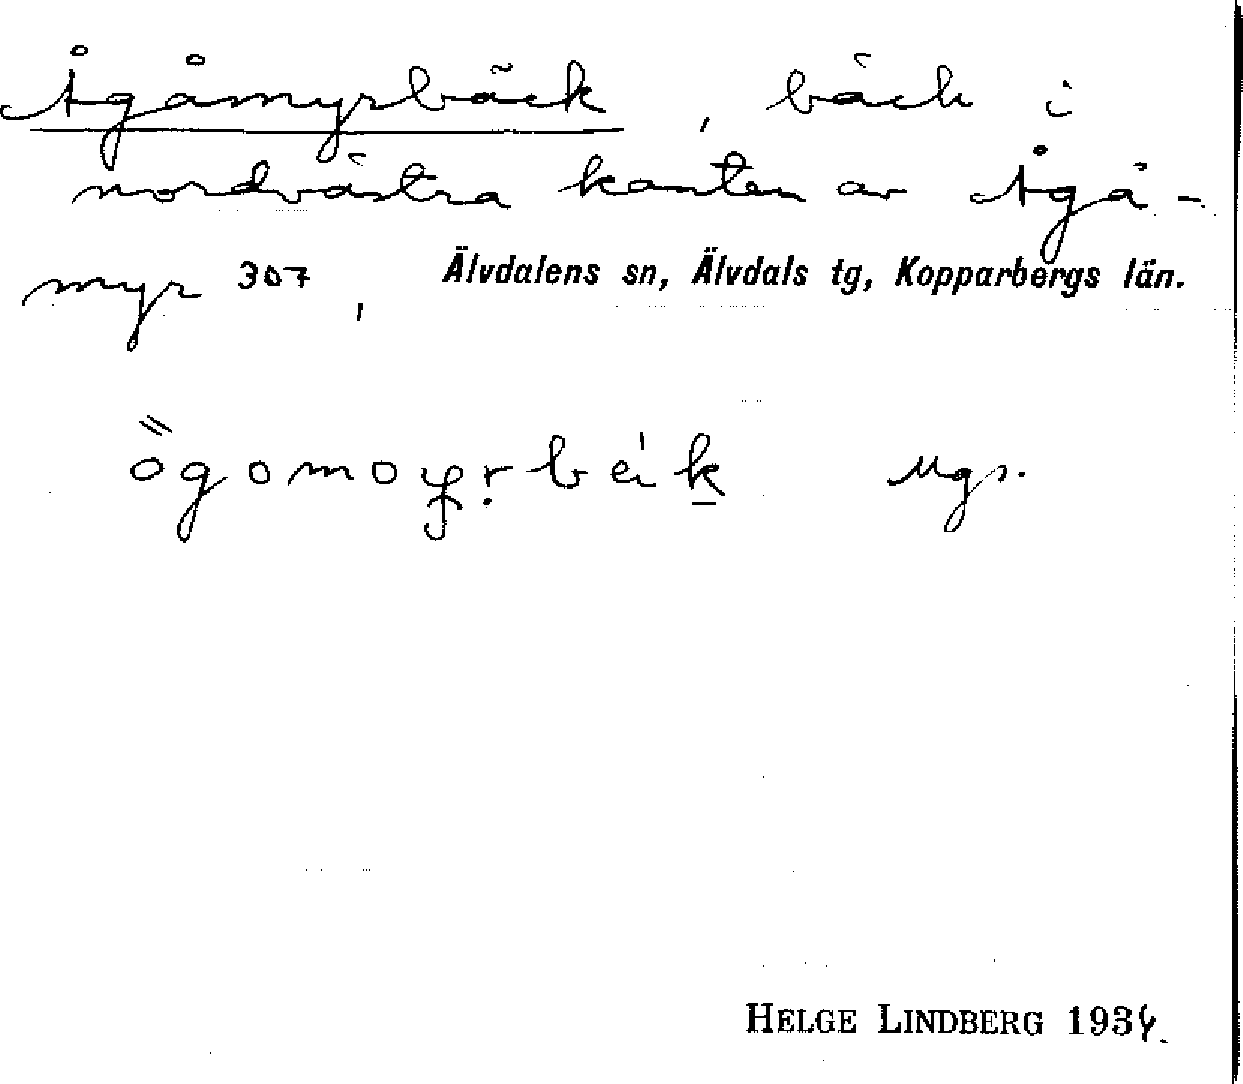 Ågåmyrbäck, bäck i
nordvästra kanten av Ågå-
myr 307, Älvdalens sn, Älvdals tg, Kopparbergs län.
Mgs.
HELGE LINDBERG 1934.